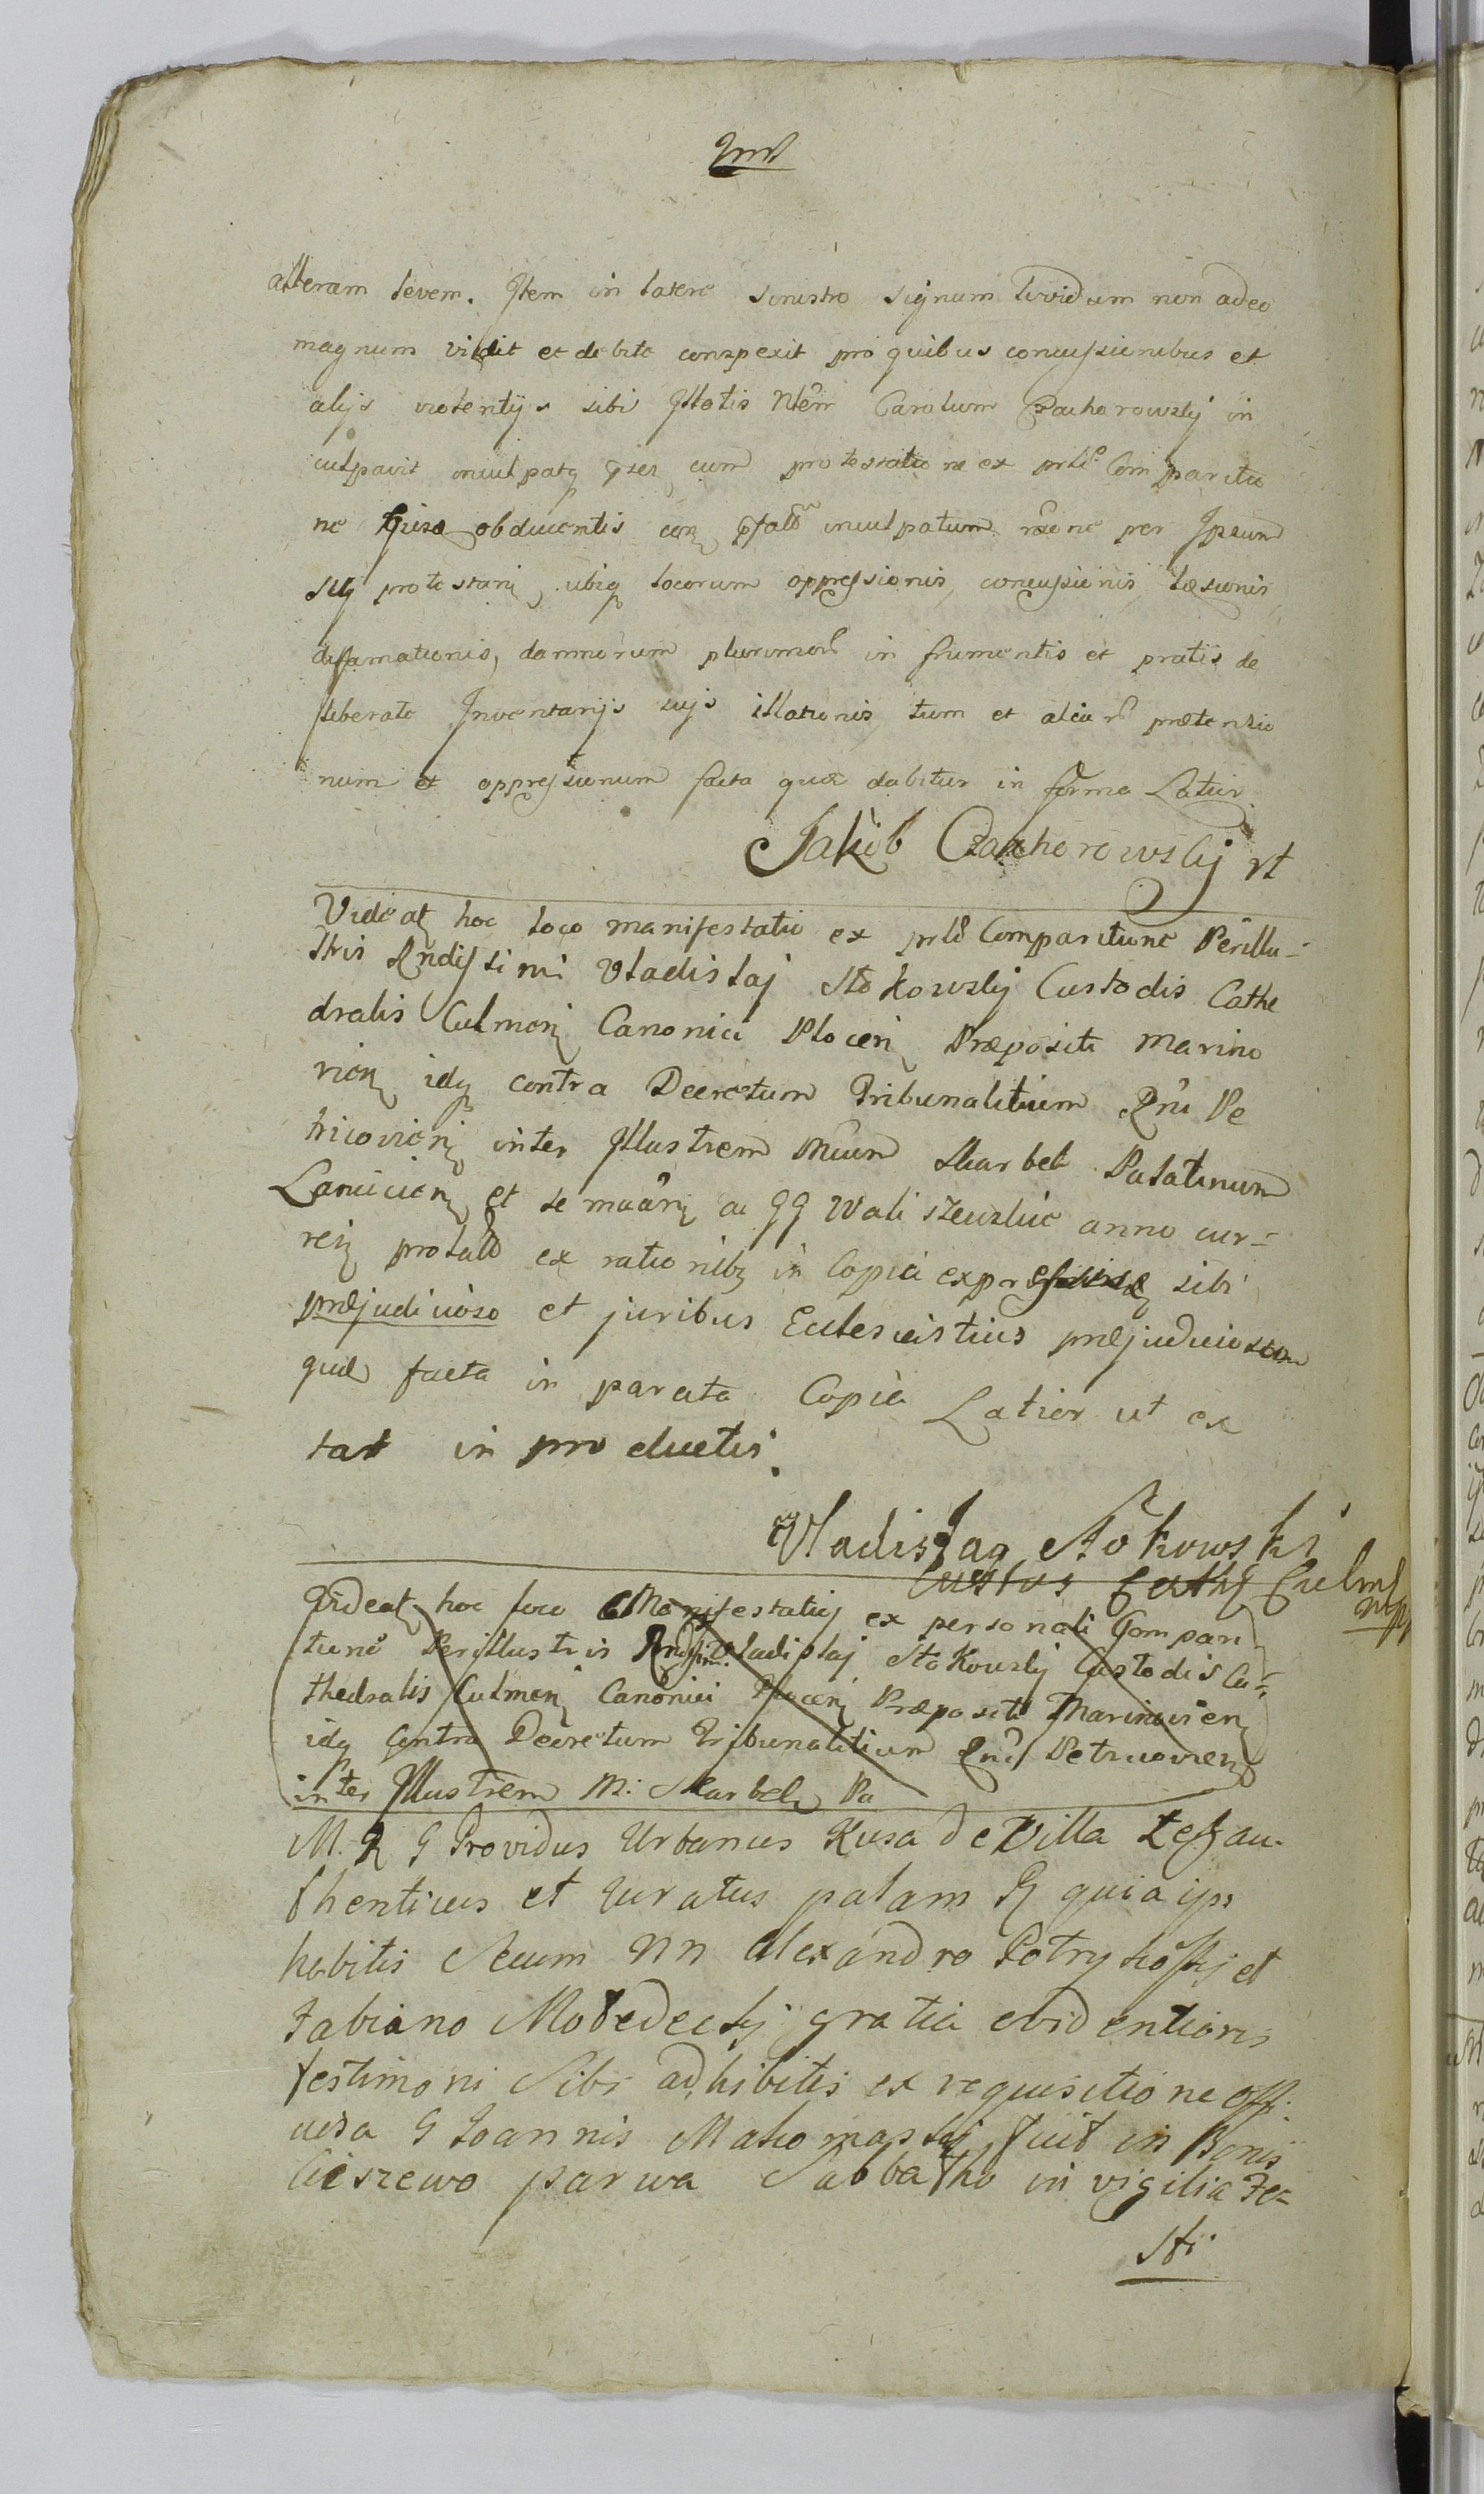 alteram levem. Item in latere sinistro signum lividum non adeo
magnum vidit et debite conspexit pro quibus concussionibus et
alijs violentijs sibi Illatis Nlem Carolum Czachorowskj in
culpavit inculpatq cum protestatione ex prli Comparitio
ne obducentis con inculpatum raone per Ipsum
protestanj, ubiq locorum oppressionis, concussionis, læsionis,
diffamationis, damnorum plurimor in frumentis et pratis de
liberate Inventarijs sujs illationis, tum et alior prætensio
num et oppressionum facta quæ dabitur in forma Latior
Jakob Czachorowskj
Videatz hoc loco manifestatio ex prli Comparitione Perillu-
stris Rndissimi Vladislaj Stokowskj Custodis Cathe
dralis Culmenz Canonici Plocenz Præpositi Marino
vienz idq contra Decretum Tribunalitium Rni Pe
tricovienz inter Illustrem Mcum Skarbek Palatinum
Lancicienz et se ac GG Waliszewskie anno cur-
renz prolato ex rationibz in Copia sibi
præjudicioso et juribus Ecclesiasticis præjudiciosum
quæ facta in parata Copia Latior ut ex
tat in productis.
Vladislaq Stokowski
Custos Cathf Culmf
mpp
Videatz hoc loco Manifestatio ex personali Compari
tione Perillustris Rndissimi Vladislaj Stokowskj Custodis Ca-
thedralis Culmenz Canonici Plocenz Præpositi Marinovienz
idq Contra Decretum Tribunalitium Rni Petricovienz
inter Illustrem M: Skarbek Pa
M. R G Providus Urbanus Kusa de Villa Leg au-
thenticus et Iuratus palam R quia ips
habitis Secum NN Alexandro Potrykoskj et
Fabiano Modedeckj gratia evidentioris
testimoni Sibi adhibitis ex requisitione offi-
ciosa G Joannis Makomaskj fuit in Bonis
Cieszewo parva Sabbatho in vigilia Fe-
sti